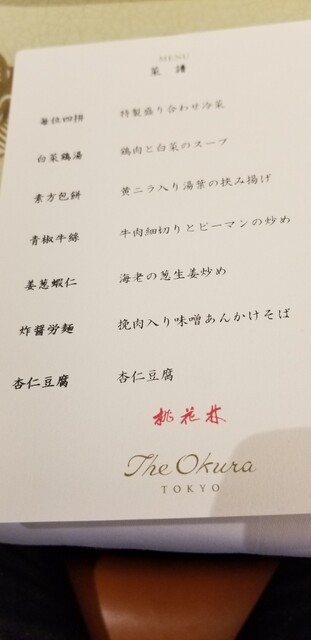 MENU
菜譜
每位四拼 特製盛り合わせ冷菜
白菜鶏湯 鶏肉と白菜のスープ
素方包餅 黄ニラ入り湯葉の挟み揚げ
青椒牛絲 牛肉細切りとピーマンの炒め
姜葱蝦仁 海老の葱生姜炒め
炸醬労麺 挽肉入り味噌あんかけそば
杏仁豆腐 杏仁豆腐
桃花林
The Okura
TOKYO